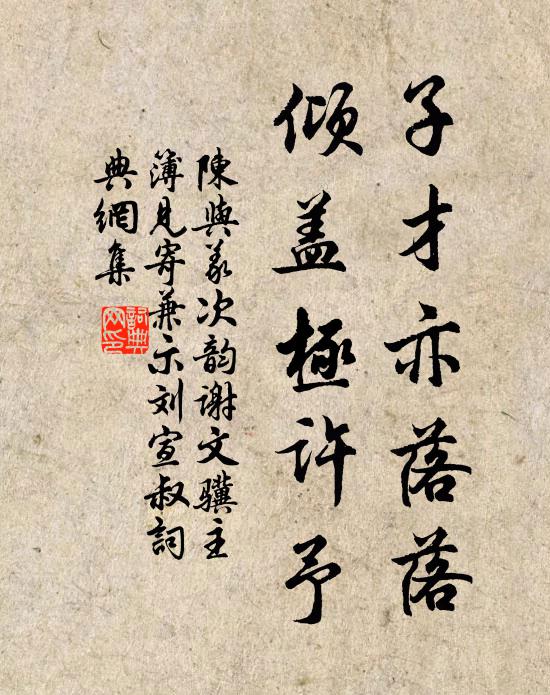 子才亦落落
倾盖極許予
陳與義次韵謝文驥主
簿見寄兼示刘宣叔詞
典網集
詞典網印